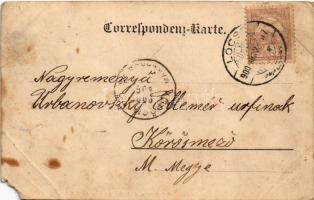 Correspondenz-Karte.
Nagyreményű
Urbanovszky Elemér urfinak
Körösmező
M. Megye